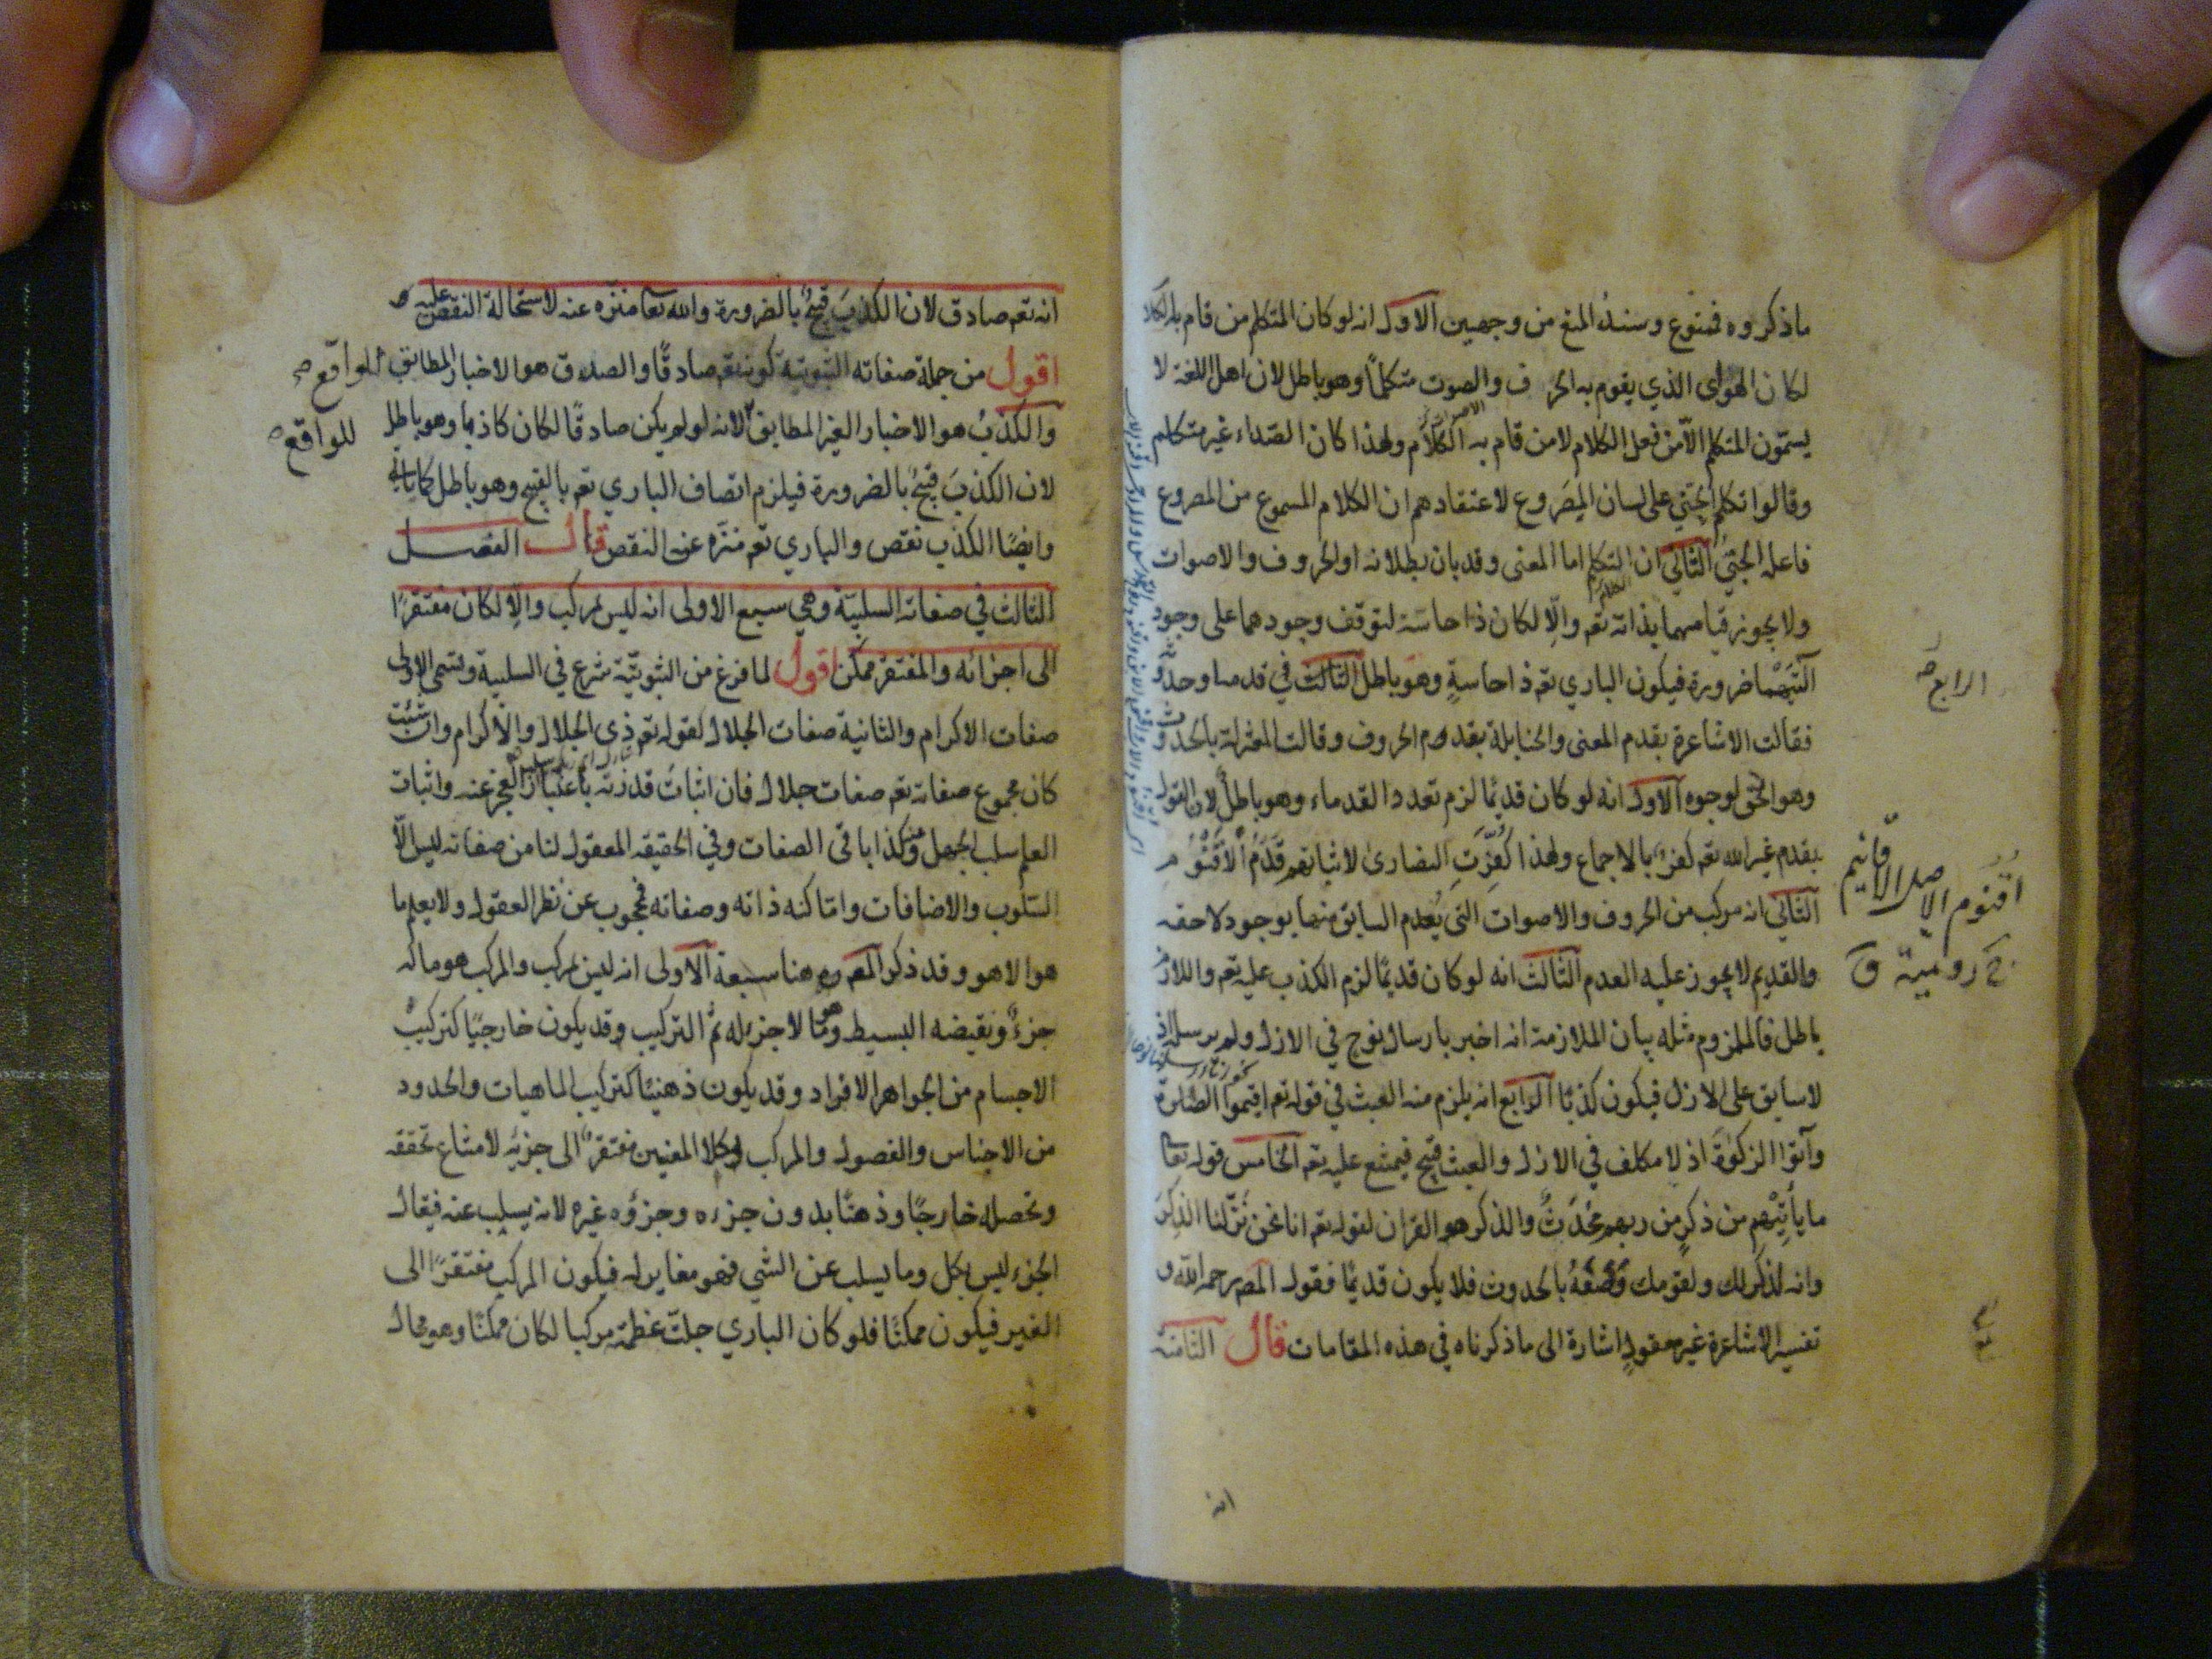 ما ذكروه فممنوع وسند المنع من وجهين الاول انه لو كان المتكلم من قام به الكلام
لكان الهواى الذي يقوم به الحرف والصوت متكلما وهو باطل لان اهل اللغة لا
يسمّون المتكلم الّا من فعل الكلام لا من قام به الكلام ولهذا كان الصداء غير متكلم
وقالوا تكلم الجنّي على لسان المصروع لاعتقادهم ان الكلام المسموع من المصروع
فاعله الجنّيُ الثاني ان الكلام اما المعنى وقد بان بطلانه او الحروف والاصوات
ولا يجوز قيامهما بذاته تعم والّا لكان ذا حاسّة لتوقف وجودهما على وجود
آلتَيْهما ضرورة فيكون الباري تعم ذا حاسةٍ وهو باطل الثالث في قدمه او حدوثه
الرابع صح
فقالت الاشاعرة بقدم المعنى والحنابلة بقدم الحروف وقالت المعتزلة بالحدوث
وهو الحق لوجوه الاول انه لو كان قديمًا لزم تعدد القدماء وهو باطلٌ لان القول
بقدم غير الله تعم كفرٌ بالاجماع ولهذا كُفِّرَتِ النصارى لاثباتهم قِدَمُ الاُقْنُوم
اُقنُوم الاصل الاقانيم
ج رومية ق
الثاني انه مركب من الحروف والاصوات التي يُعدم السابق منها بوجود لاحقه
والقديم لا يجوز عليه العدم الثالث انه لو كان قديمًا لزم الكذب عليه تعم واللازم
باطل فالملزوم مثله بيان الملازمة انه اخبر بارسال نوح في الازل ولم يرسله اذ
لا سابق على الازل فيكون كذبًا الرابع انه يلزم منه العبث في قوله تعم اقيموا الصلوة
وآتوا الزكوٰةَ اذ لا مكلف في الازل والعبث قبيح فيمتنع عليه تعم الخامس قوله تعا
ما يأتيْهم من ذكرٍ من ربهم مُحْدَثٌ والذكر هو القران لقوله تعم انا نحن نزّلنا الذِكرَ
وانه لذكر لك ولقومك وَصَفَهُ بالحدوث فلا يكون قديمًا فقول المص رحمه الله و
تفسير الاشاعرة غير معقولٍ اشارة الى ما ذكرناه في هذه المقامات قال الثامنة
انه
انه تعم صادق لان الكذبَ قبيحٌ بالضرورة والله تعا منزّه عنه لاستحالة النقص عليه
اقول من جملة صفاته الثبوتية كونه تعم صادقًا والصدق هو الاخبار المطابق للواقع صح
والكذبُ هو الاخبار الغير المطابق لانه لو لم يكن صادقًا لكان كاذبا وهو باطل
للواقع صح
لان الكذبَ قبيحٌ بالضرورة فيلزم اتصاف الباري تعم بالقبيح وهو باطل كما ياتي
وايضًا الكذب نقص والباري تعم منزّه عن النقص قال الفصل
الثالث في صفاته السلبيّة وهي سبع الاولى انه ليس بمركب والّا لكان مفتقرًا
الى اجزائه والمفتقر ممكن اقول لما فرغ من الثبوتيّة شرع في السلبية وتسمى الاولى
صفات الاكرام والثانية صفات الجلال لقوله تعم ذي الجلال والاكرام وان شئت
كان مجموع صفاته تعم صفات جلال فان اثباتَ قدرته باعتبار العجز عنه واثبات
العلم سلب الجهل وكذا باقى الصفات وفي الحقيقه المعقول لنا من صفاته ليس الّا
السّلوب والاضافات وامّا كنه ذاته وصفاته فمحجوب عن نظر العقول ولا يعلم ما
هو الا هو وقد ذكر المص ره هنا سبعة الاولى انه ليس بمركب والمركب هو ما له
جزءٌ ونقيضه البسيط وهو ما لا جزء له ثم التركيب وقد يكون خارجيًا كتركيب
الاجسام من الجواهر الافراد وقد يكون ذهنيًا كتركيب الماهيات والحدود
من الاجناس والفصول والمركب بكلا المعنيين مفتقرٌ الى جزئه لامتناع تحققه
وتحصله خارجًا وذهنًا بدون جزءه وجزؤه غيره لانه يسلب عنه فيقال
الجزء ليس بكل وما يسلب عن الشي فهو مغاير له فيكون المركب مفتقرًا الى
الغير فيكون ممكنًا فلو كان الباري جلّت عظمته مركبا لكان ممكنًا وهو محال